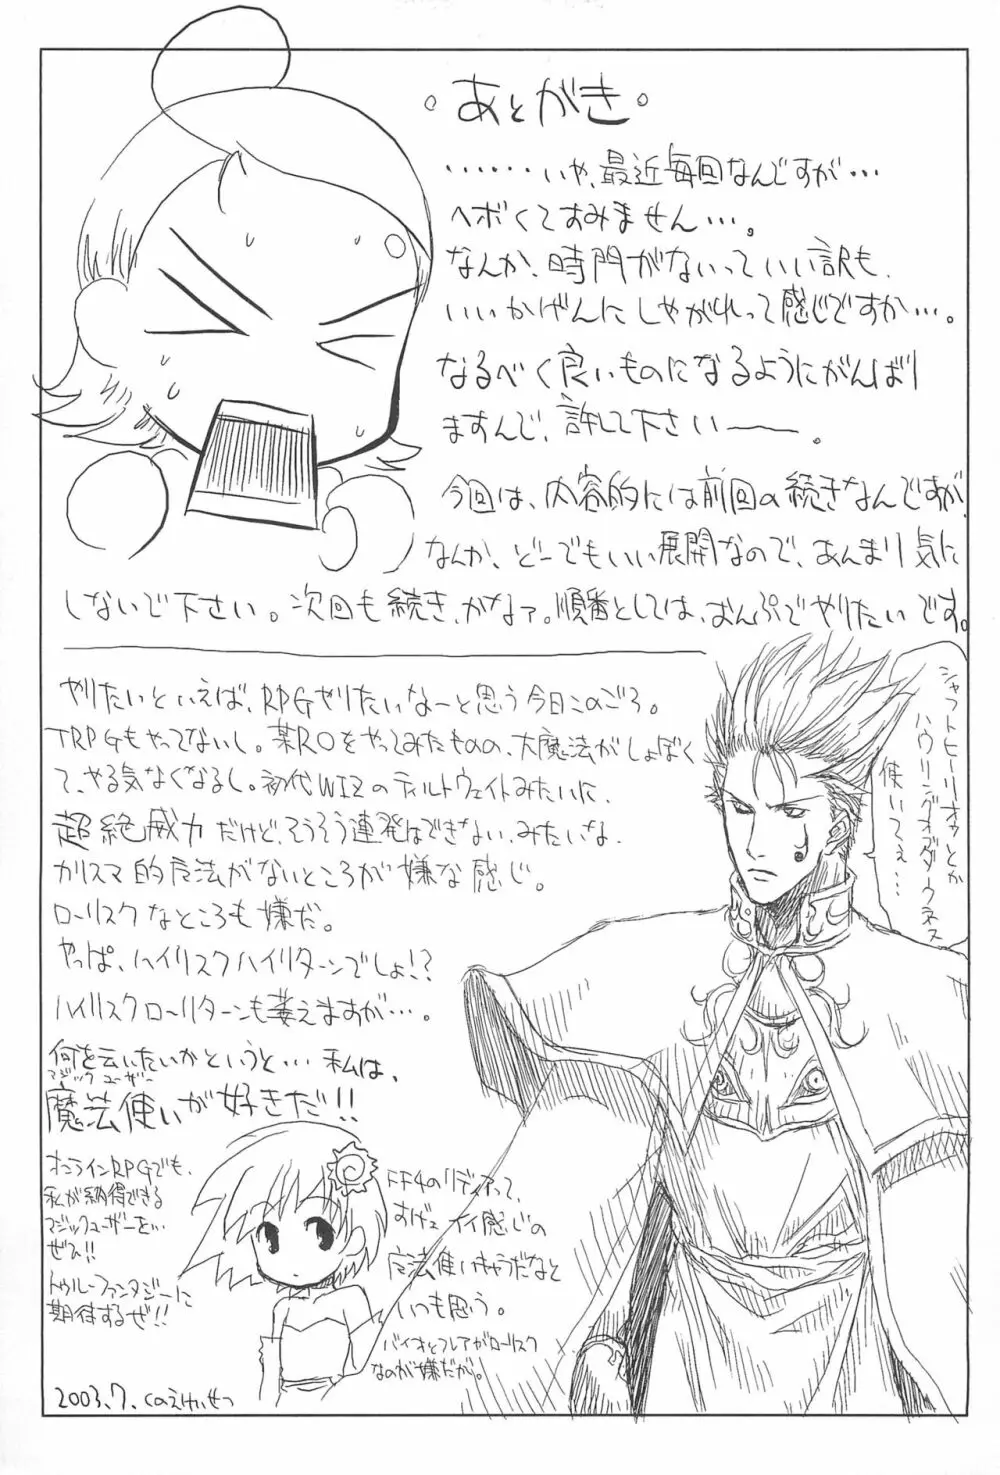 ・あとがき・
・・・・・・いや、最近毎回なんですが・・・
ヘボくてすみません・・・。
なんか、時間がないっていい訳も、
いいかげんにしやがれって感じですか・・・。
なるべく良いものになるようにがんばり
ますんで、許して下さい――。
今回は、内容的には前回の続きなんですが、
なんか、どーでもいい展開なので、あんまり気に
しないで下さい。次回も続き、かなァ。順番としては、おんぷでやりたいです。
やりたいといえば、RPGやりたいなーと思う今日このごろ。
TRPGもやってないし。某ROをやってみたものの、大魔法がしょぼく
て、やる気なくなるし。初代WIZのティルトウェイトみたいに、
超絶威力だけど、そうそう連発はできない、みたいな
カリスマ的魔法がないところが嫌な感じ。
ローリスクなところも嫌だ。
やっぱ、ハイリスクハイリターンでしょ!?
ハイリスクローリターンも萎えますが・・・。
何を云いたいかというと・・・私は、
マジックユーザー
魔法使いが好きだ!!
オンラインRPGでも、
私が納得できる
マジックユーザーを・・
ぜひ!!
トゥルーファンタジーに
期待するぜ!!
FF4のリディアって、
すげェイイ感じの
魔法使いキャラだなと
いつも思う。
バイオとフレアがローリスク
なのが嫌だが。
シャフトヒーリオゥとか
ハウリングオダーウネス
使いてぇ・・・
2003.7. このえけいせつ